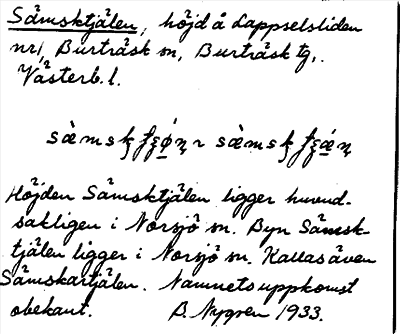 Sämsktjälen, höjd å Lappselsliden
nr 1, Burträsk sn, Burträsk tg,.
Västerb. l.
Höjden Sämsktjälen ligger huvud-
sakligen i Norsjö sn. Byn Sämsk-
tjälen ligger i Norsjö sn. Kallas även
Sämskartjälen. Namnets uppkomst
obekant. B. Nygren 1933.